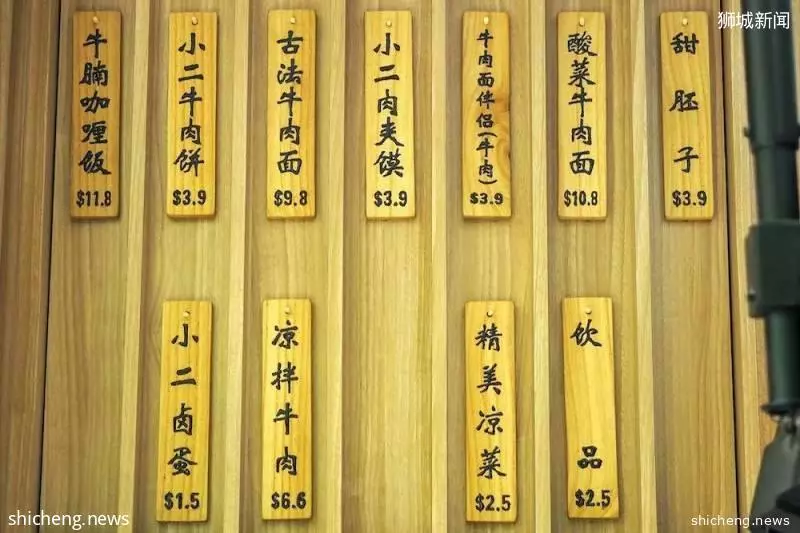 狮城新闻
牛腩咖喱饭
$11.8
小二牛肉饼
$3.9
古法牛肉面
$9.8
小二肉夹馍
$3.9
牛肉面伴侣(牛肉)
$3.9
酸菜牛肉面
$10.8
甜胚子
$3.9
小二卤蛋
$1.5
凉拌牛肉
$6.6
精美凉菜
$2.5
饮品
$2.5
shicheng.news
shicheng.news